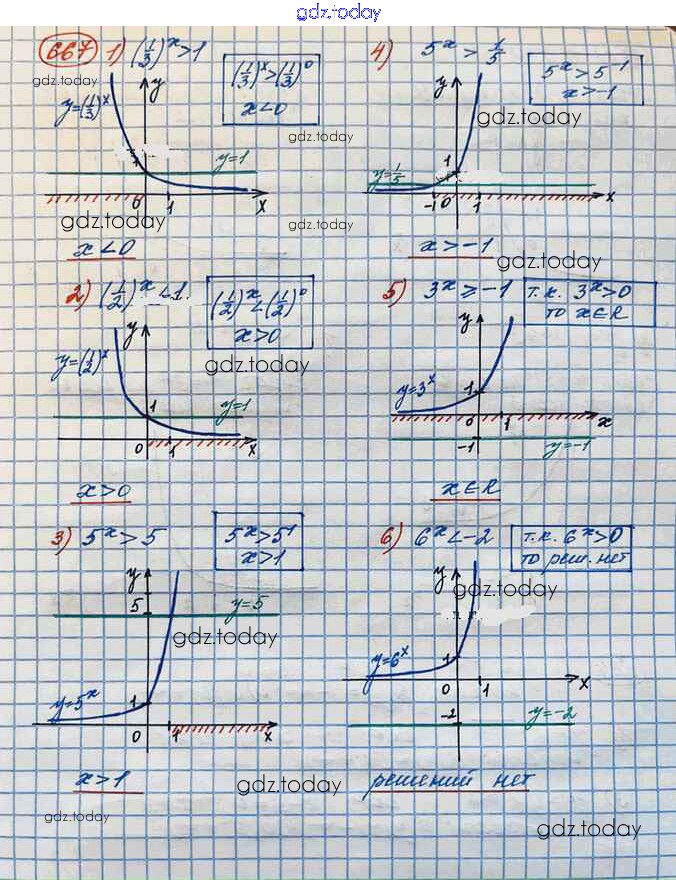 gdz.today
667 1) (1/3)^x > 1
(1/3)^x > (1/3)^0
x < 0
gdz.today
y = (1/3)^x
y
gdz.today
y = 1
0 1 x
gdz.today
x < 0
4) 5^x > 1/5
5^x > 5^-1
x > -1
y
gdz.today
1
y = 1/5
-1 0 1 x
gdz.today
x > -1
gdz.today
2) (1/2)^x < 1.
(1/2)^x < (1/2)^0
x > 0
y
y = (1/2)^x
gdz.today
1
y = 1
0 1 x
x > 0
5) 3^x ≥ -1
т.к. 3^x > 0
то x ∈ R
y
y = 3^x
1
0 1 x
-1
y = -1
x ∈ R
3) 5^x > 5
5^x > 5^1
x > 1
y
5
y = 5
gdz.today
y = 5^x
1
0 1 x
x > 1
gdz.today
gdz.today
6) 6^x < -2
т.к. 6^x > 0
то реш. нет
y
gdz.today
y = 6^x
1
0 1 x
-2
y = -2
решений нет
gdz.today